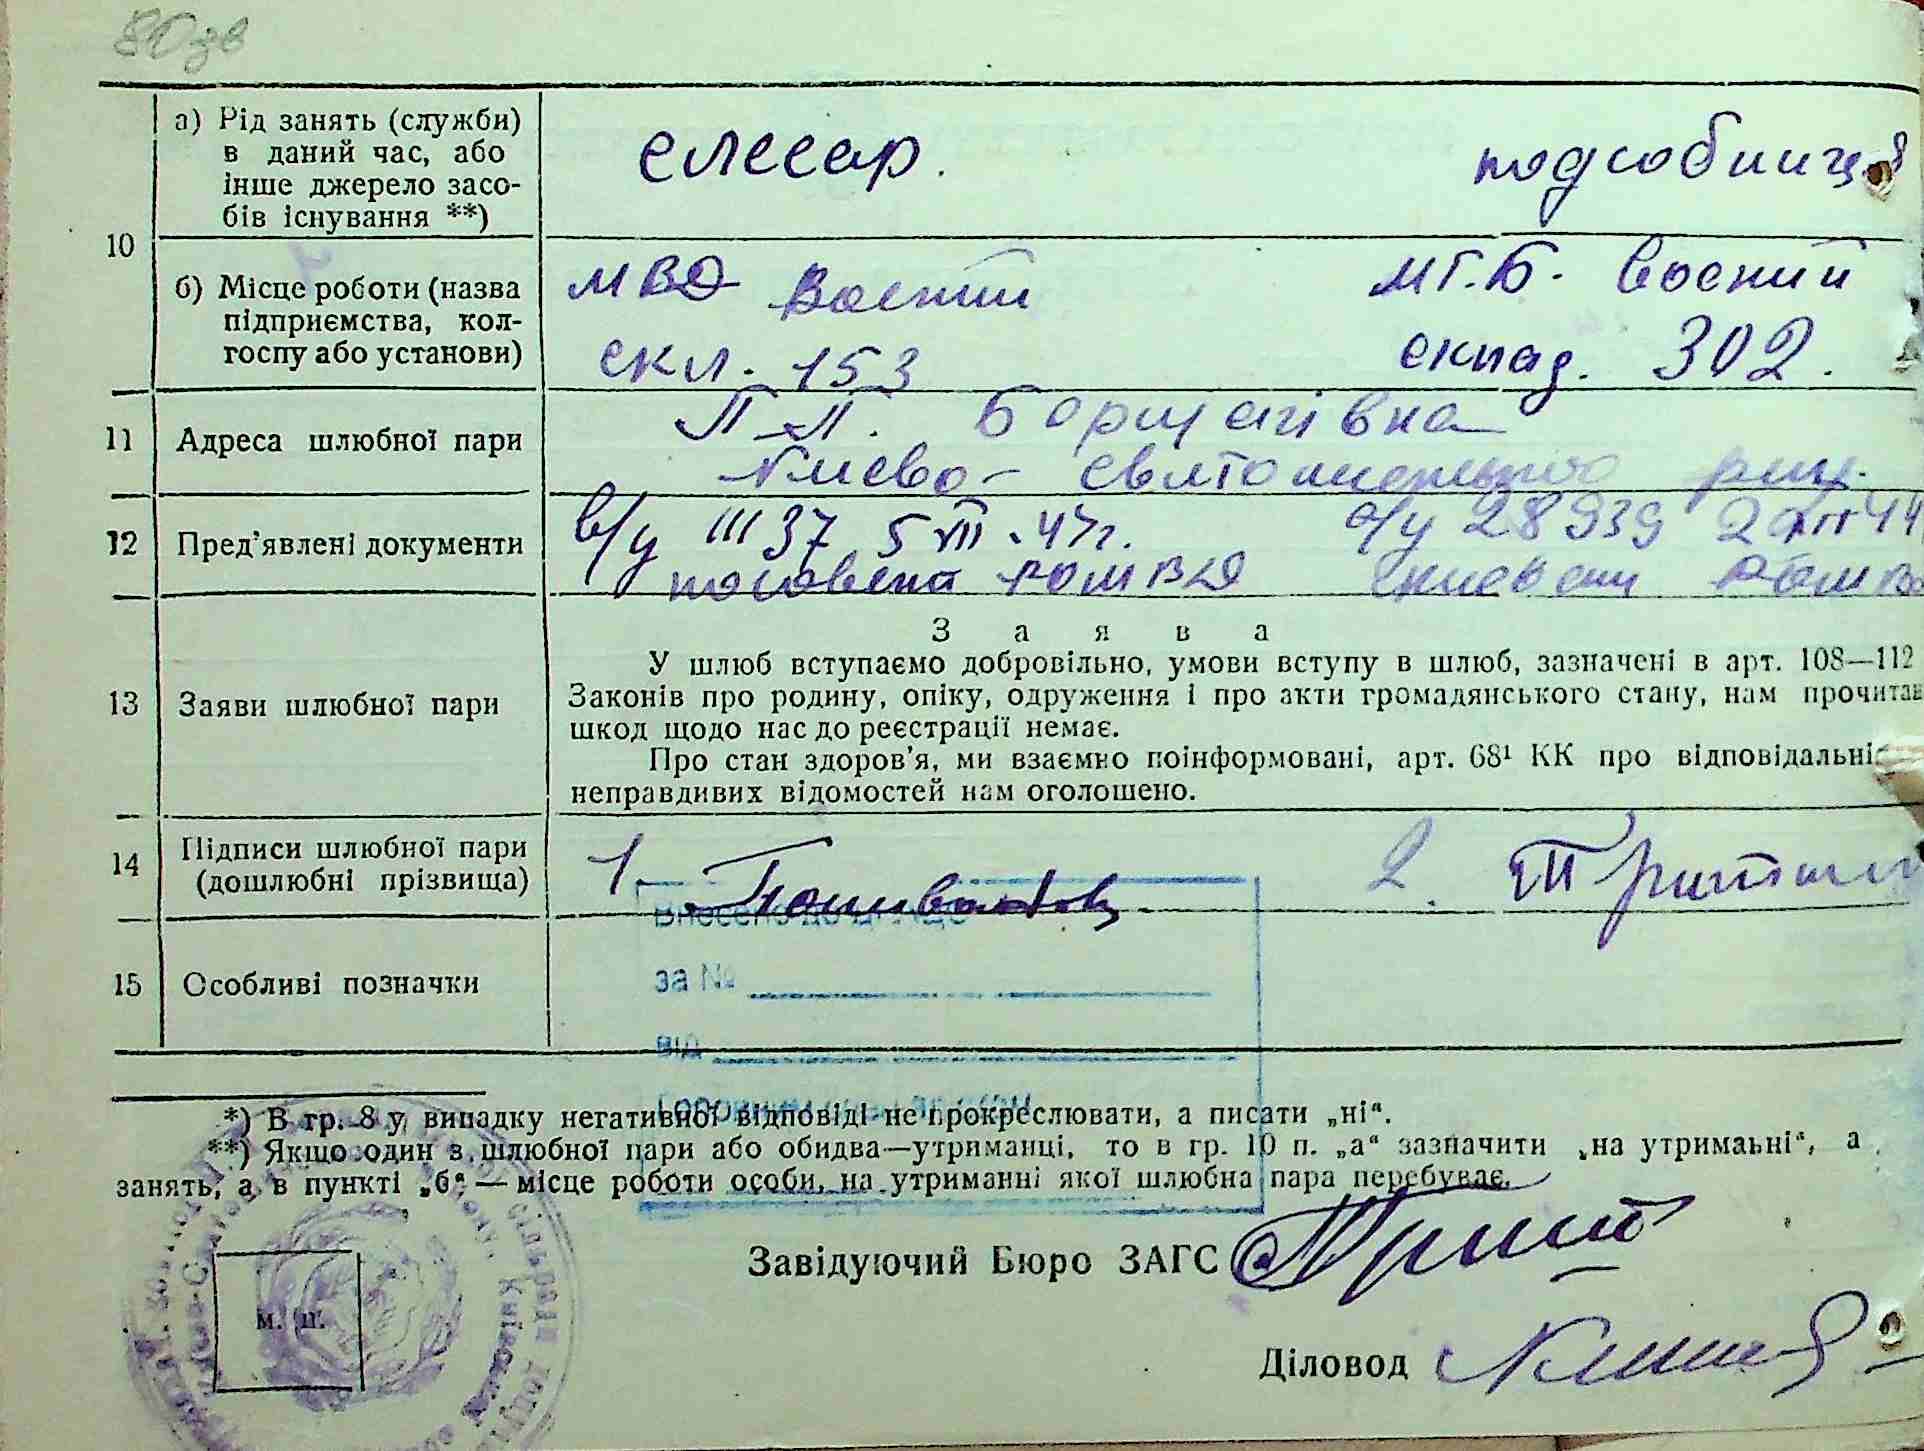 80зв
а) Рід занять (служби)
в даний час, або
інше джерело засо-
бів існування **)
слесар.
подсобниця
10
б) Місце роботи (назва
підприємства, кол-
госпу або установи)
МВД Воєний
скл. 153
МГ.Б. Воєний
склад. 302.
11 Адреса шлюбної пари
П-П. Борщагівка
Києво-Святошинського
12 Пред'явлені документи
в/у III 37 5 VII.47г.
РОМВД
с/у 28939
РОМВД
13 Заяви шлюбної пари
Заява
У шлюб вступаємо добровільно, умови вступу в шлюб, зазначені в арт. 108—112
Законів про родину, опіку, одруження і про акти громадянського стану, нам прочитан
шкод щодо нас до реєстрації немає.
Про стан здоров'я, ми взаємно поінформовані, арт. 68¹ КК про відповідальніс
неправдивих відомостей нам оголошено.
14 Підписи шлюбної пари
(дошлюбні прізвища)
1.
2.
Внесено до ДРАЦС
15 Особливі позначки
за №
від
*) В гр. 8 у випадку негативної відповіді не прокреслювати, а писати „ні“.
**) Якщо один з шлюбної пари або обидва—утриманці, то в гр. 10 п. „а“ зазначити „на утриманні“, а
занять, а в пункті „б“ — місце роботи особи, на утриманні якої шлюбна пара перебуває.
Завідуючий Бюро ЗАГС
м. п.
Діловод